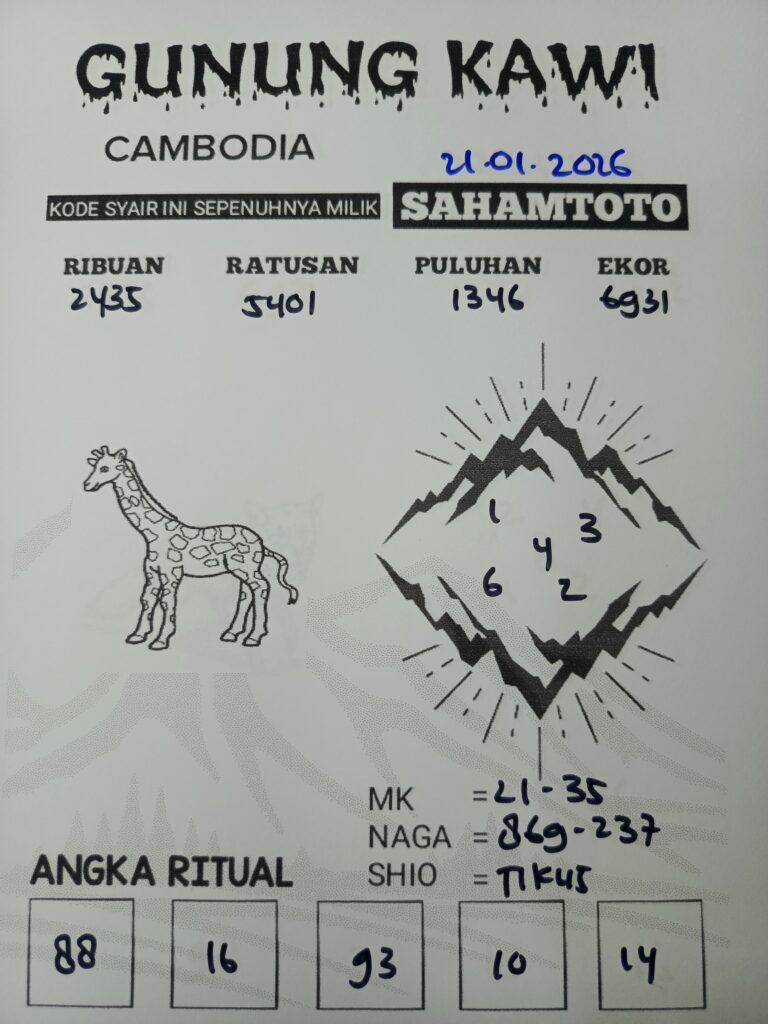 GUNUNG KAWI
CAMBODIA
21.01.2026
KODE SYAIR INI SEPENUHNYA MILIK SAHAMTOTO
RIBUAN RATUSAN PULUHAN EKOR
2435 5401 1346 6931
1 3
4
6 2
MK = 21-35
NAGA = 869-237
SHIO = TIKUS
ANGKA RITUAL
88 16 93 10 14